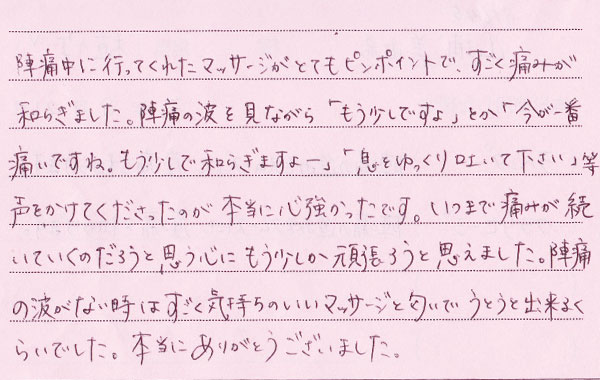 陣痛中に行ってくれたマッサージがとてもピンポイントで、すごく痛みが
和らぎました。陣痛の波を見ながら「もう少しですよ」とか「今が一番
痛いですね。もう少しで和らぎますよー」「息をゆっくり吐いて下さい」等
声をかけてくださったのが本当に心強かったです。いつまで痛みが続
いていくのだろうと思う心にもう少しか頑張ろうと思えました。陣痛
の波がない時はすごく気持ちのいいマッサージと匂いでうとうと出来るく
らいでした。本当にありがとうございました。